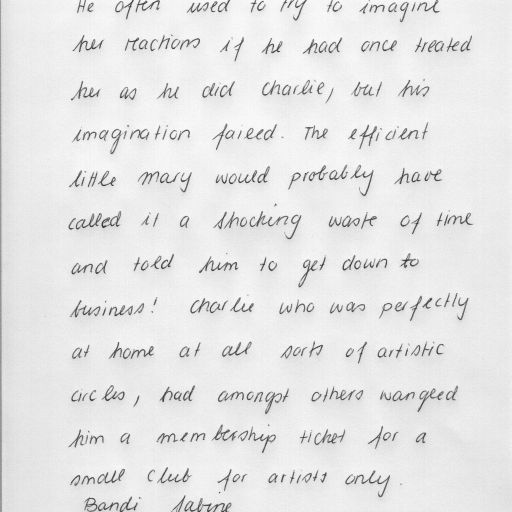 He often used to try to imagine
her reactions if he had once treated
her as he did Charlie, but his
imagination failed. The efficient
little Mary would probably have
called it a shocking waste of time
and told him to get down to
business! Charlie who was perfectly
at home at all sorts of artistic
circles, had amongst others wangled
him a membership ticket for a
small club for artists only.
Bandi Sabine